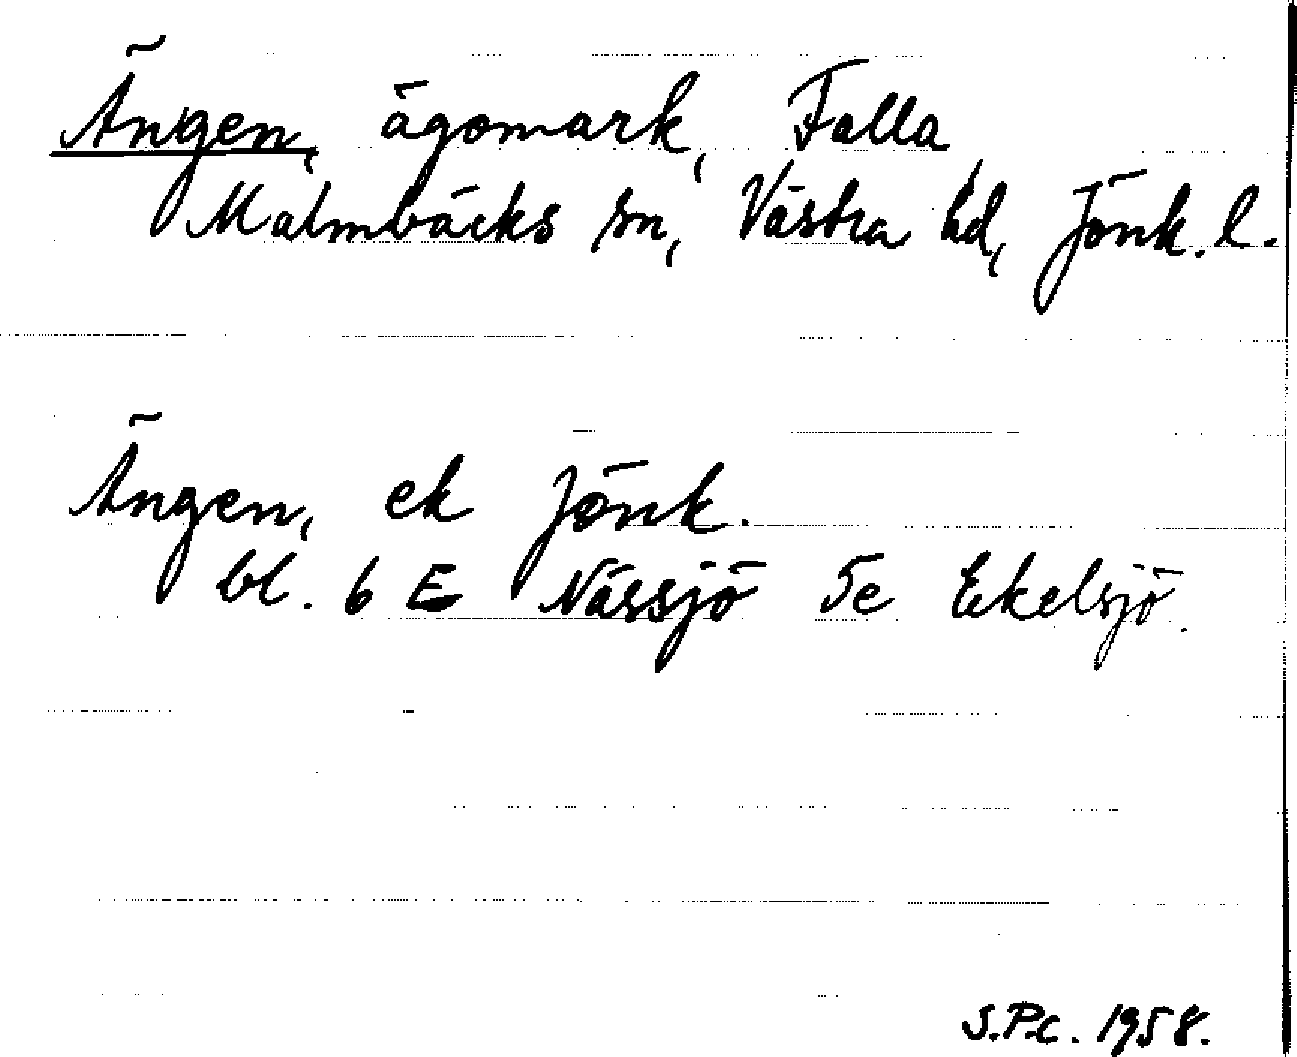 Ängen, ägomark, Falla
Malmbäcks sn, Västra hd, Jönk. l.
Ängen, ek Jönk.
bl. 6 E Nässjö 5e Ekelsjö.
S.P.c. 1958.